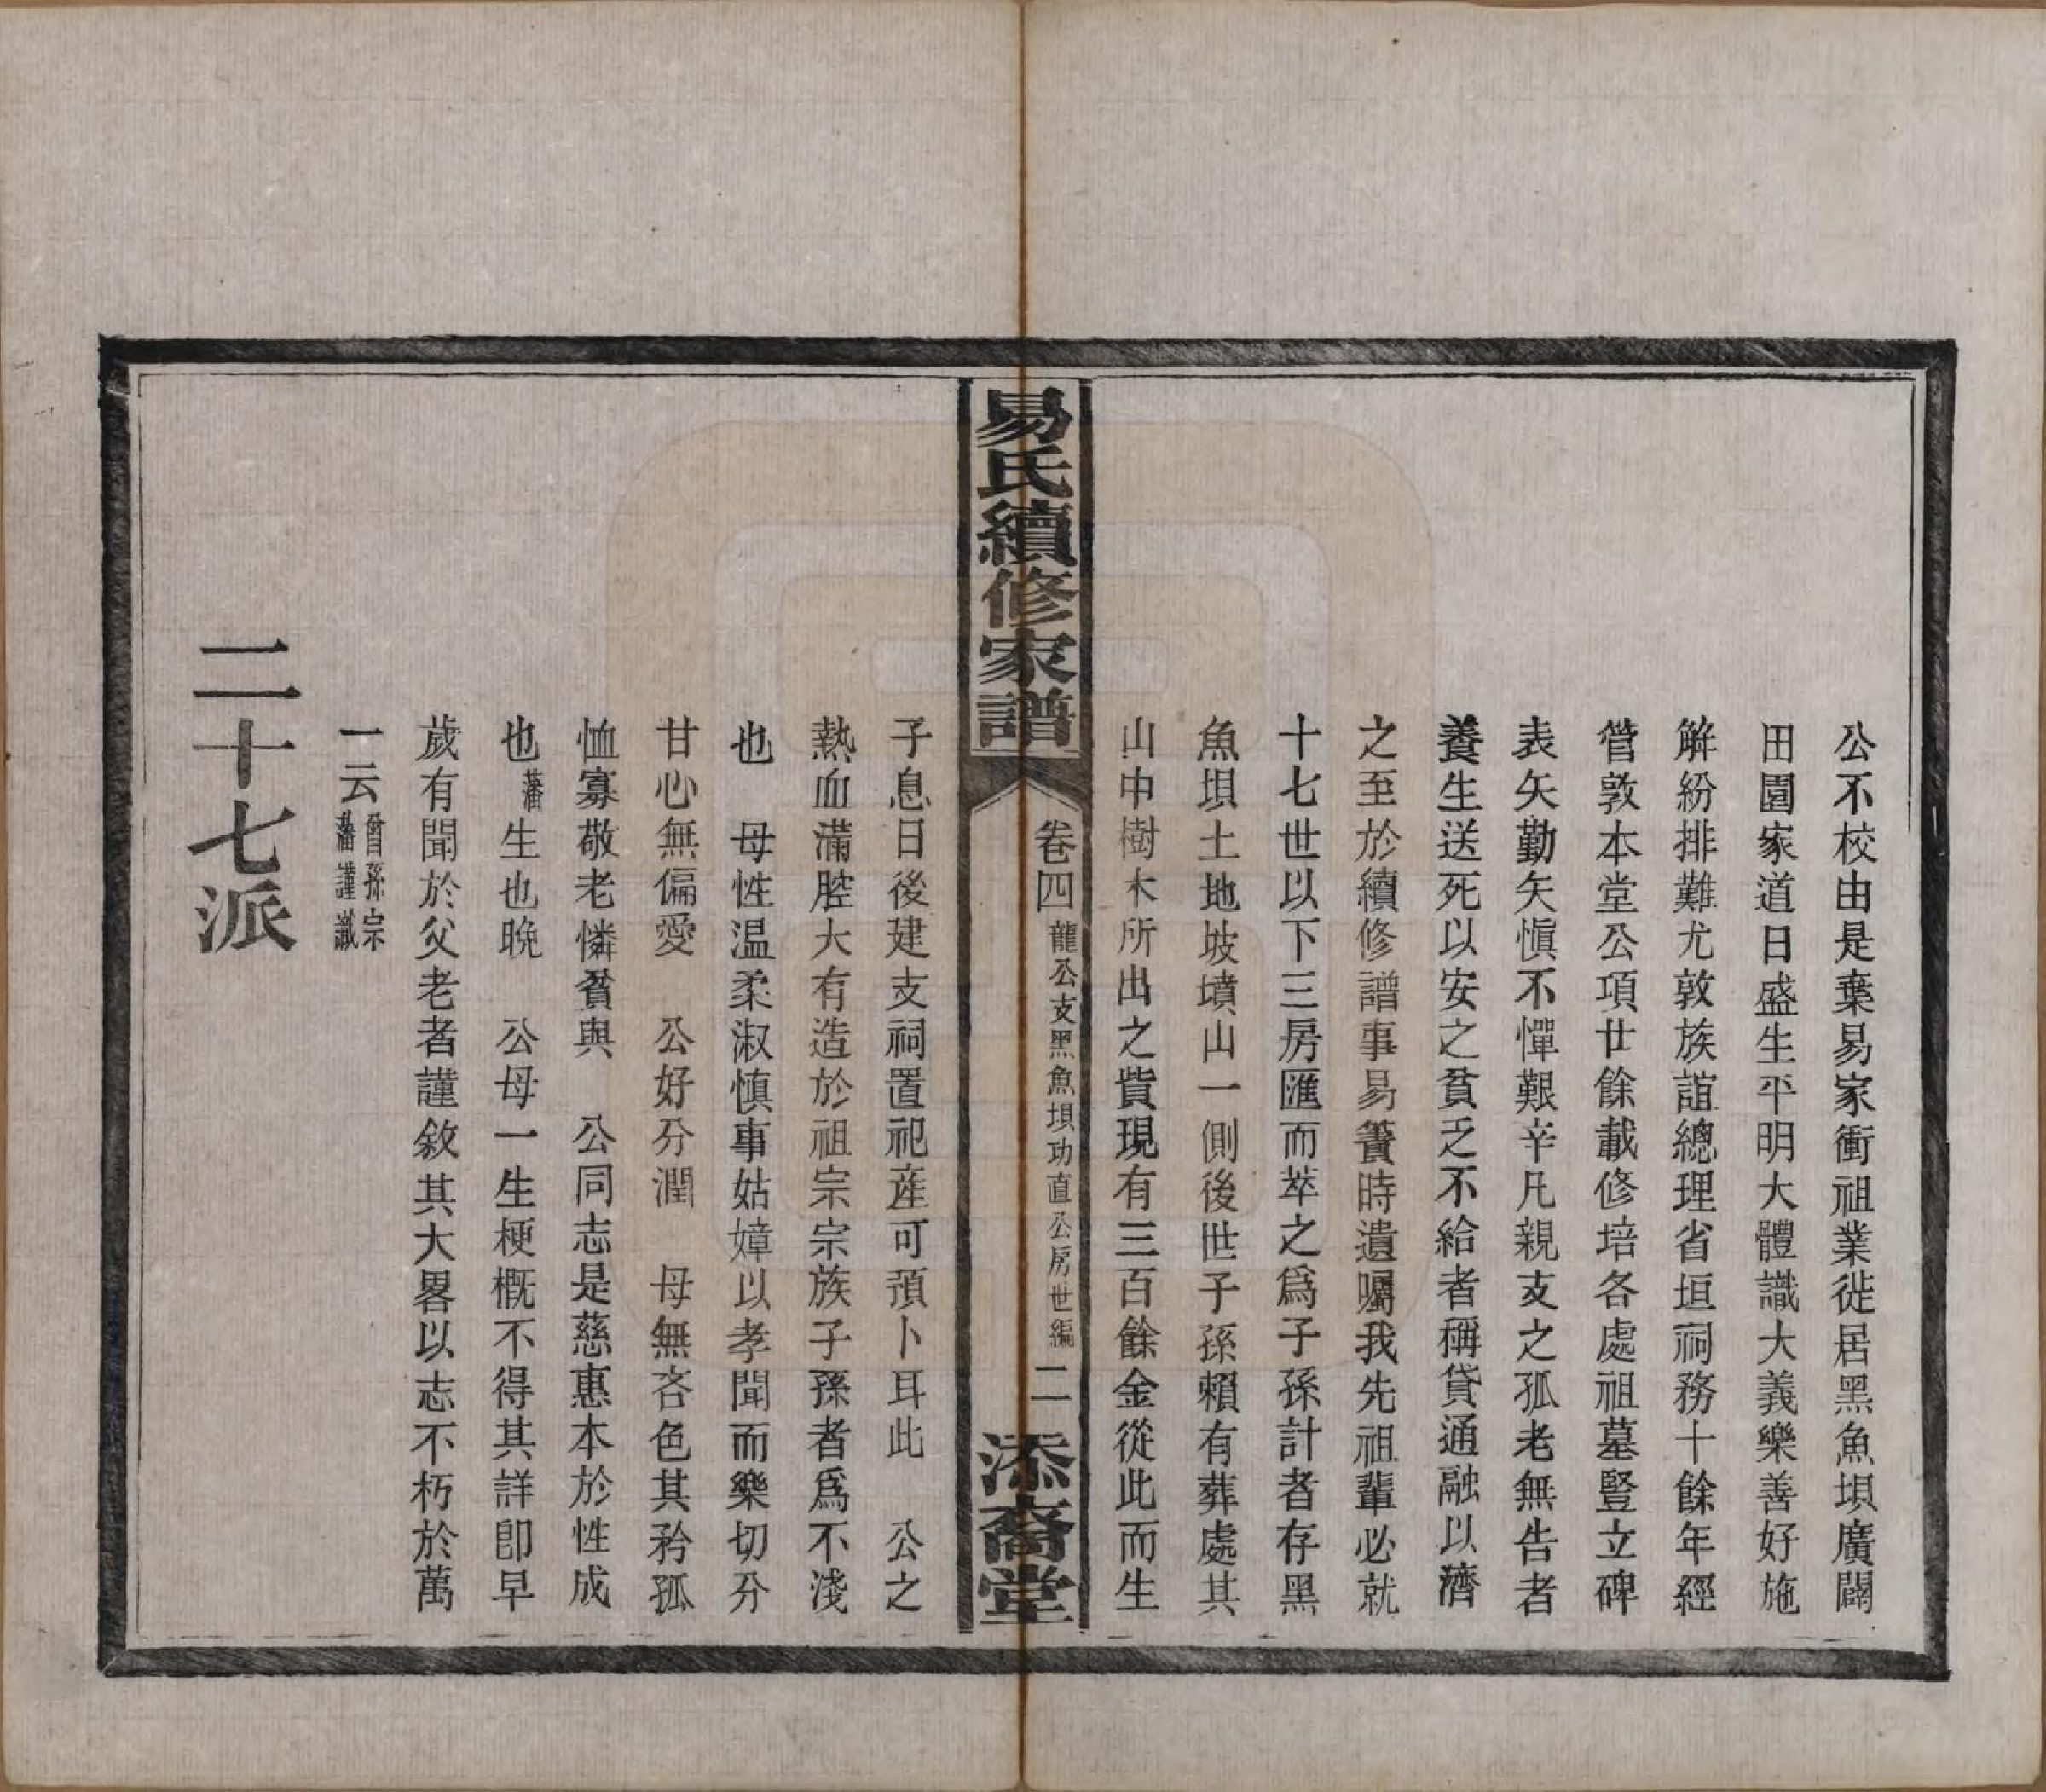 公不校由是棄易家衝祖業徙居黑魚垻廣闢
田園家道日盛生平明大體識大義樂善好施
解紛排難尤敦族誼總理省垣祠務十餘年經
管敦本堂公項廿餘載修培各處祖墓豎立碑
表矢勤矢慎不憚艱辛凡親支之孤老無告者
養生送死以安之貧乏不給者稱貸通融以濟
之至於續修譜事易簀時遺囑我先祖輩必就
十七世以下三房匯而萃之爲子孫計者存黑
魚垻土地坡墳山一側後世子孫賴有葬處其
山中樹木所出之貲現有三百餘金從此而生
易氏續修家譜
卷四 龍公支黑魚垻功直公房世編 二
添裔堂
子息日後建支祠置祀產可預卜耳此 公之
熱血滿腔大有造於祖宗宗族子孫者爲不淺
也 母性温柔淑慎事姑嫜以孝聞而樂切分
甘心無偏愛 公好分潤 母無吝色其矜孤
恤寡敬老憐貧與 公同志是慈惠本於性成
也藩生也晚 公母一生梗概不得其詳卽早
歲有聞於父老者謹敘其大畧以志不朽於萬
一云 曾孫宗藩謹識
二十七派